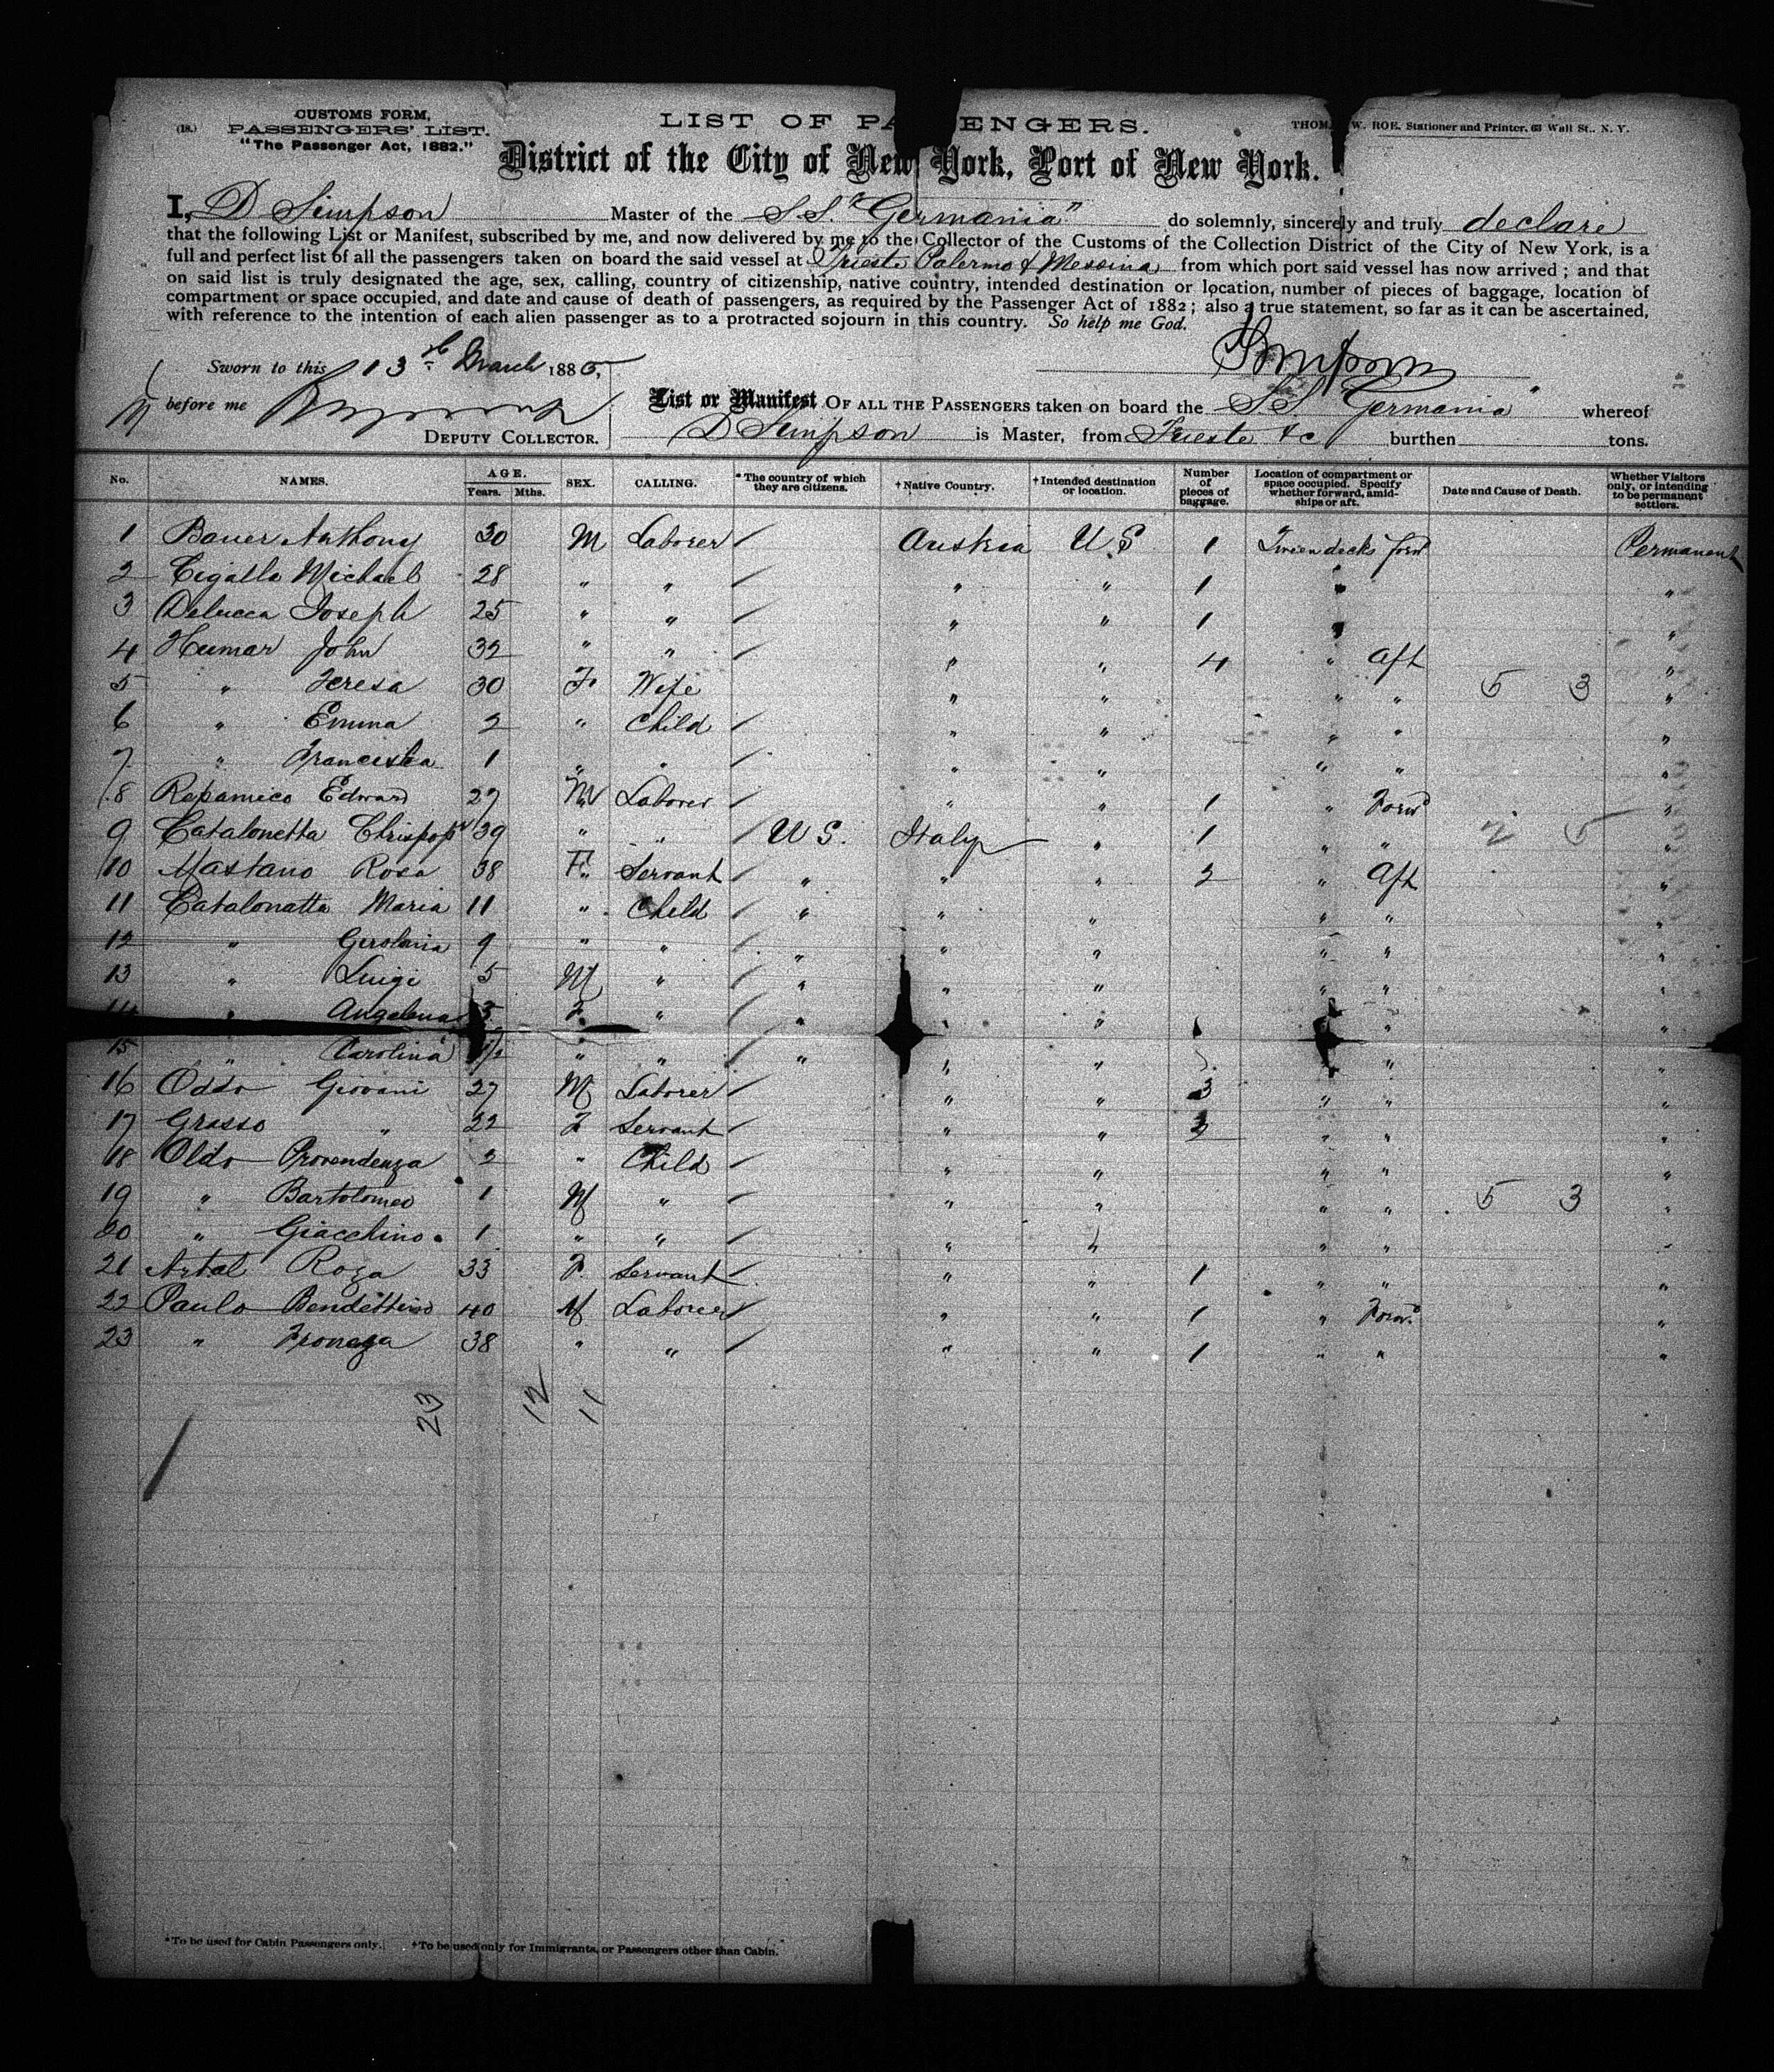 (18.)
CUSTOMS FORM,
PASSENGERS' LIST.
"The Passenger Act, 1882."
LIST OF PA ENGERS.
THOM W. ROE, Stationer and Printer, 63 Wall St., N. Y.
District of the City of New York, Port of New York.
I, D Simpson Master of the S.S. "Germania" do solemnly, sincerely and truly declare
that the following List or Manifest, subscribed by me, and now delivered by me to the Collector of the Customs of the Collection District of the City of New York, is a
full and perfect list of all the passengers taken on board the said vessel at Trieste Palermo & Messina from which port said vessel has now arrived; and that
on said list is truly designated the age, sex, calling, country of citizenship, native country, intended destination or location, number of pieces of baggage, location of
compartment or space occupied, and date and cause of death of passengers, as required by the Passenger Act of 1882; also a true statement, so far as it can be ascertained,
with reference to the intention of each alien passenger as to a protracted sojourn in this country. So help me God.
Sworn to this 13th March 1885,
Simpson
before me
DEPUTY COLLECTOR.
List or Manifest OF ALL THE PASSENGERS taken on board the S.S. "Germania" whereof
D Simpson is Master, from Trieste &c burthen tons.
No. NAMES. AGE. Years. Mths. SEX. CALLING. *The country of which they are citizens. †Native Country. †Intended destination or location. Number of pieces of baggage. Location of compartment or space occupied. Specify whether forward, amidships or aft. Date and Cause of Death. Whether Visitors only, or intending to be permanent settlers.
1 Bauer Anthony 30 M Laborer / Austria U.S 1 Tween decks ford Permanent
2 Cigalla Michael 28 " " / " " 1 " "
3 Delucca Joseph 25 " " / " " 1 " "
4 Humar John 32 " " / " " 4 " aft "
5 " Teresa 30 F Wife " " " " 5 3 "
6 " Emma 2 " Child / " " " " "
7 " Franciska 1 " " / " " " " "
8 Repamico Edward 27 M Laborer / " " 1 " Forwd "
9 Catalonetta 39 " " / U S. Italy " 1 " " 2 5 "
10 Mastano Rosa 38 F Servant / " " " 2 " Aft "
11 Catalonatta Maria 11 " Child / " " " " " "
12 " 9 " " / " " " " " "
13 " Luigi 5 M " / " " " " " "
14 " Angelena 3 F " / " " " " "
15 " Carolina " " / " " " " "
16 Oddo Giovani 27 M Laborer / " " 3 " " "
17 Grasso " 22 F Servant / " " " " "
18 Oldo Provendenza 2 " Child / " " " " "
19 " Bartolomeo 1 M " / " " " " 5 3 "
20 " Giacchino 1 " " / " " " " "
21 Artal Roza 33 F. Servant / " " 1 " " "
22 Paulo Bendettino 40 M Laborer / " " 1 " Forwd. "
23 " 38 " " / " " 1 " " "
23 12 11
*To be used for Cabin Passengers only. †To be used only for Immigrants, or Passengers other than Cabin.